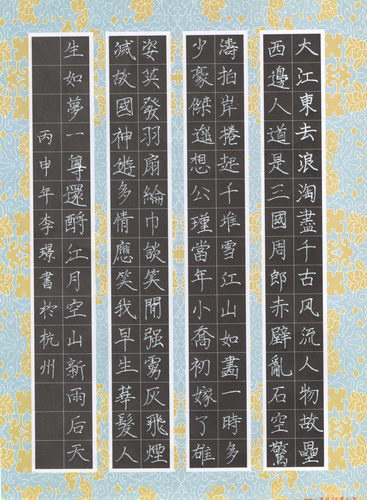 大江東去浪淘盡千古风流人物故壘
西邊人道是三國周郎赤壁亂石空驚
濤拍岸捲起千堆雪江山如畫一時多
少豪傑遥想公瑾當年小喬初嫁了雄
姿英發羽扇綸巾談笑間强虜灰飛煙
滅故國神遊多情應笑我早生華髮人
生如夢一尊還酹江月空山新雨后天
丙申年李璟書於杭州